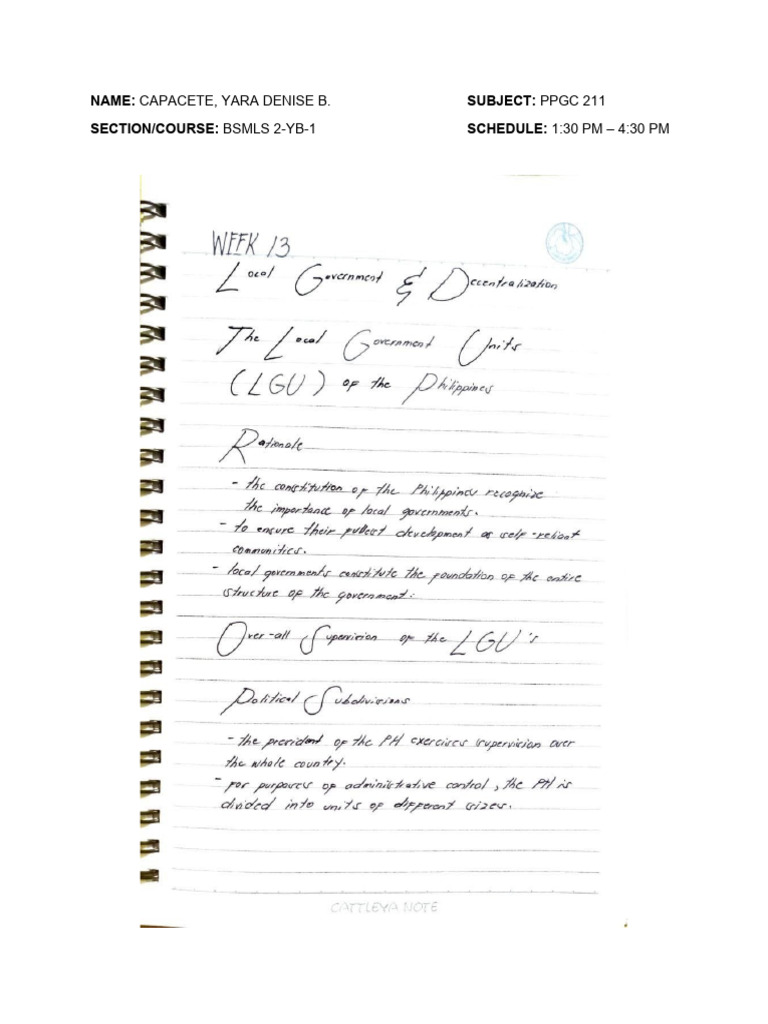 NAME: CAPACETE, YARA DENISE B. SUBJECT: PPGC 211
SECTION/COURSE: BSMLS 2-YB-1 SCHEDULE: 1:30 PM – 4:30 PM
WEEK 13
Local Government & Decentralization
The Local Government Units
(LGU) of the Philippines
Rationale
- the constitution of the Philippines recognize
the importance of local governments.
- to ensure their fullest development as self-reliant
communities.
- local governments constitute the foundation of the entire
structure of the government.
Over-all Supervision of the LGU's
Political Subdivisions
- the president of the PH exercises supervision over
the whole country.
- for purposes of administrative control, the PH is
divided into units of different sizes.
CATTLEYA NOTE